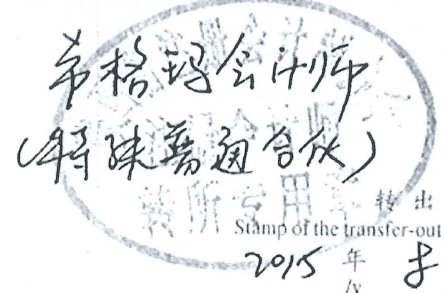 希格玛会计师
(特殊普通合伙)
转所专用章
转 出
Stamp of the transfer-out
2015 年
/y